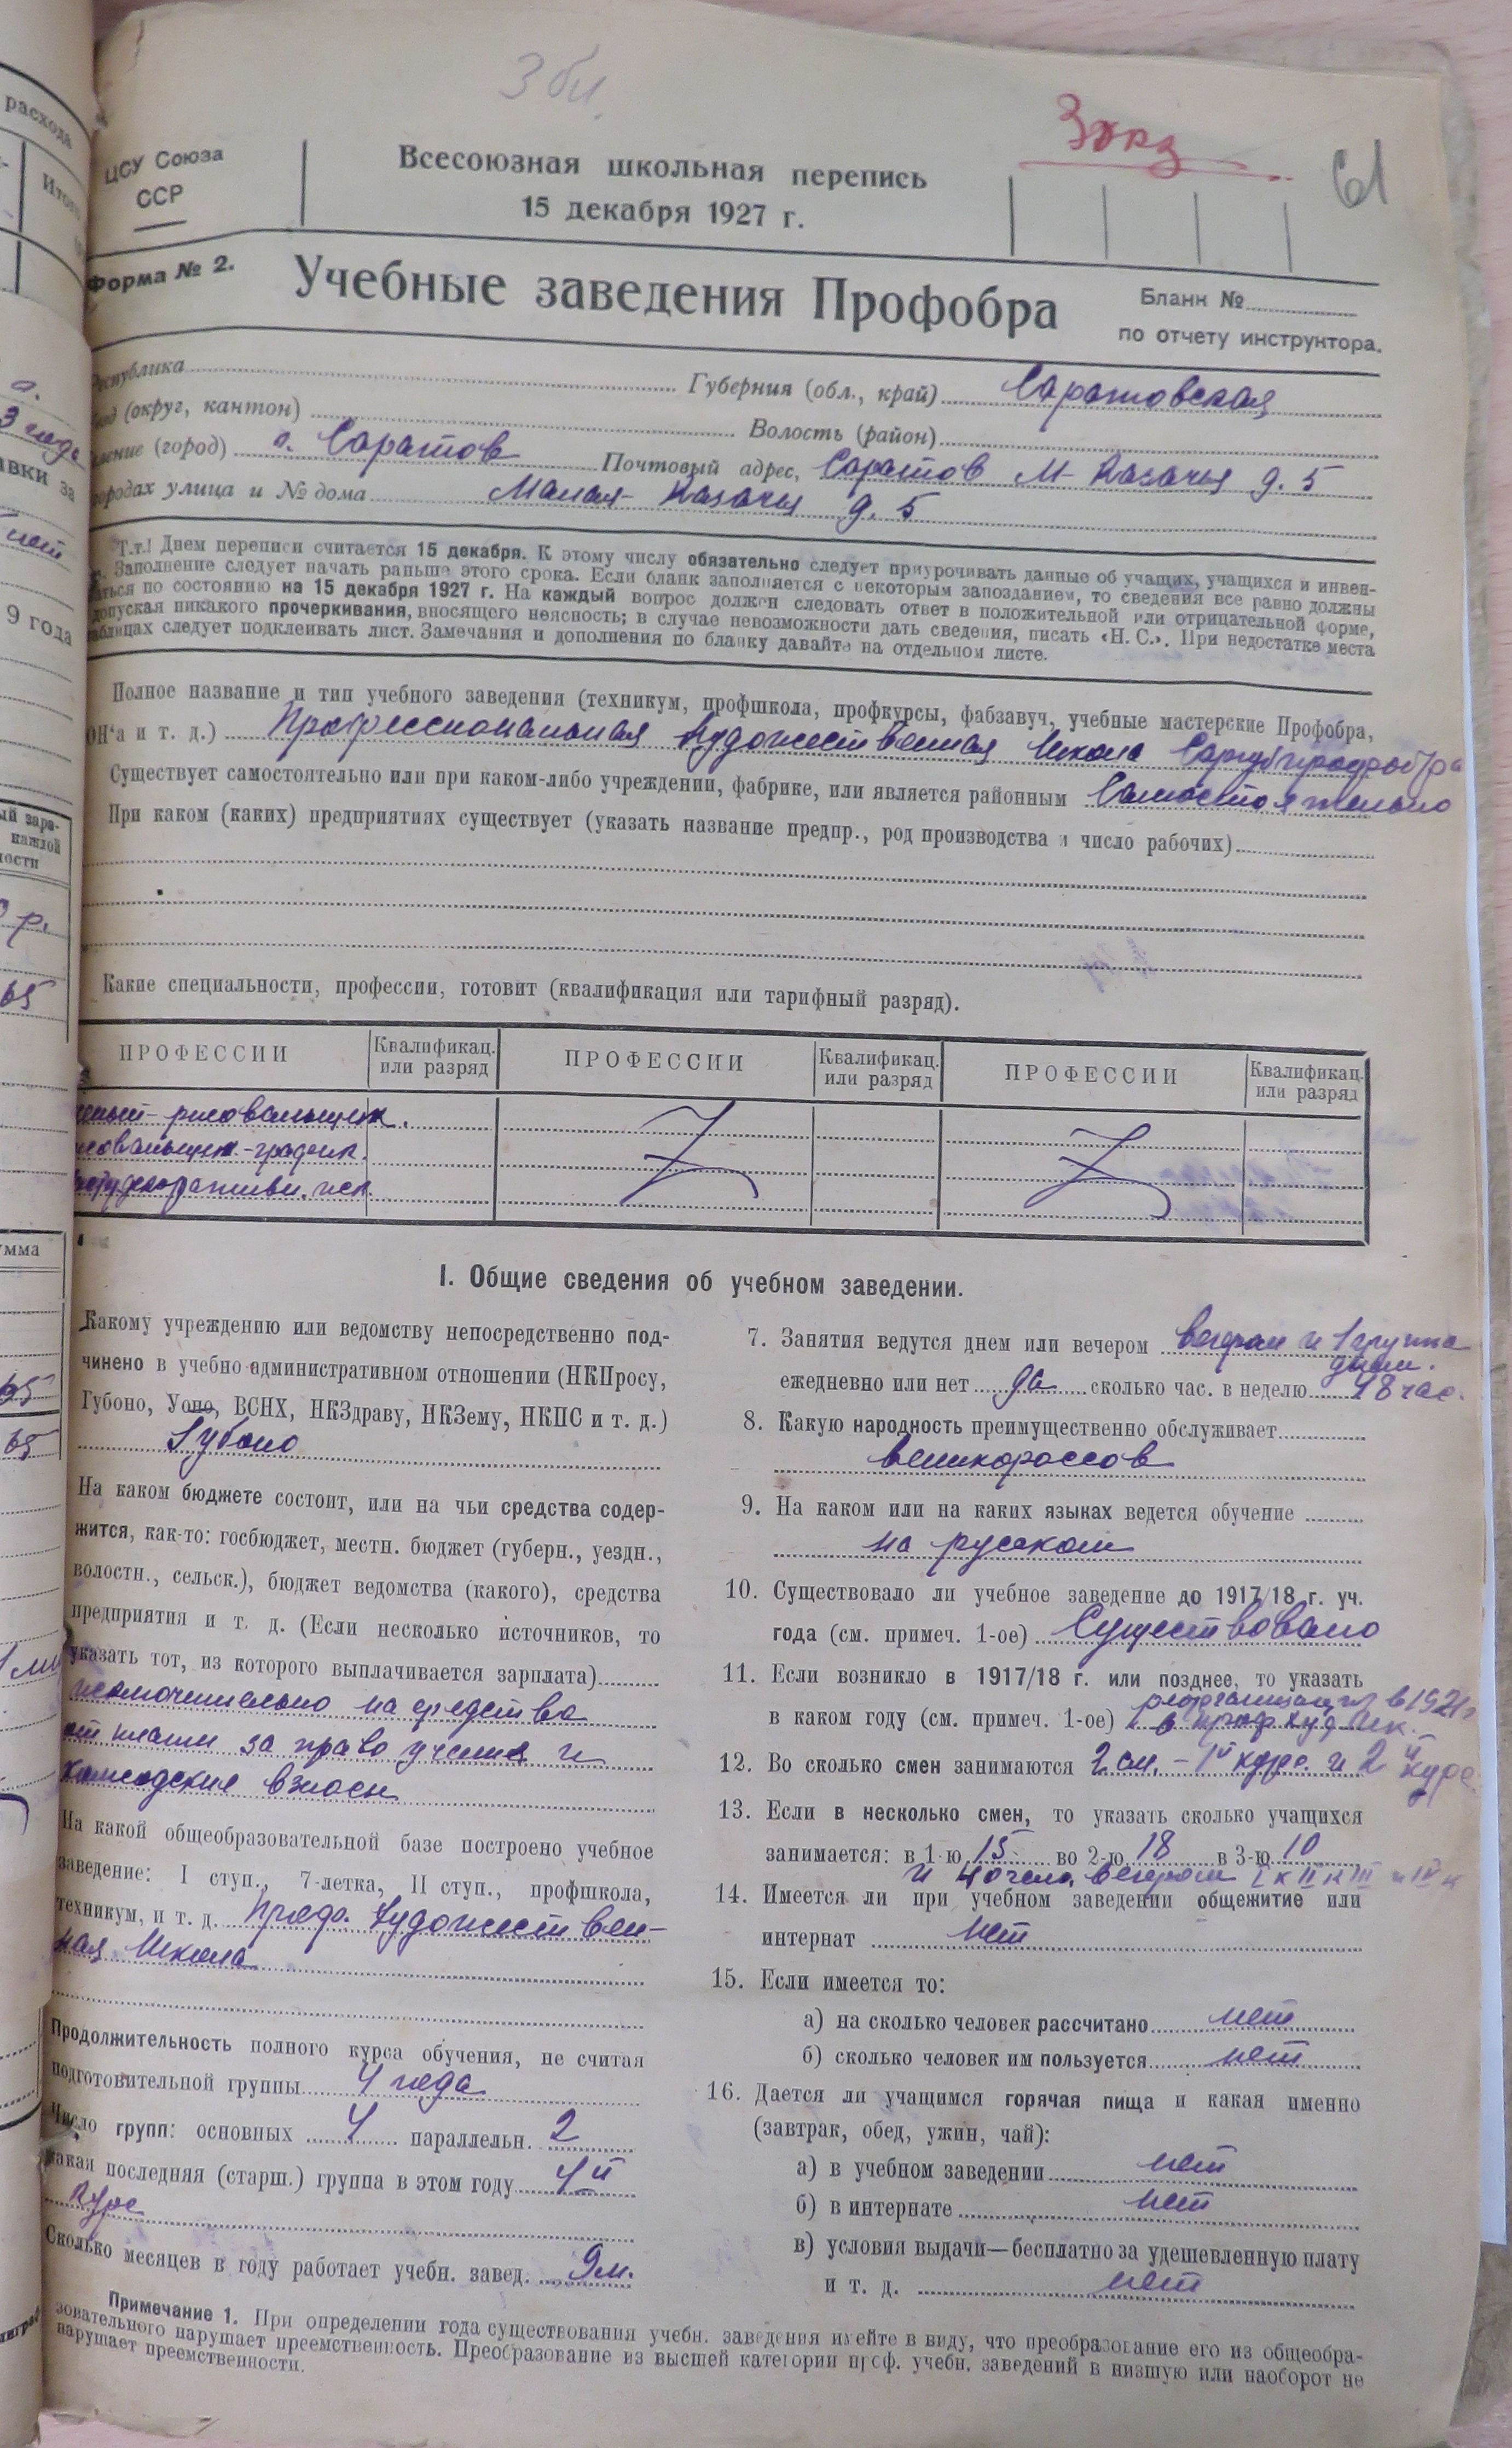 3 бл.
Зокз
61
ЦСУ Союза
ССР
Всесоюзная школьная перепись
15 декабря 1927 г.
Форма № 2.
Учебные заведения Профобра
Бланк №
по отчету инструктора.
Республика Губерния (обл., край) Саратовская
(округ, кантон) Волость (район)
(город) г. Саратов Почтовый адрес, Саратов М-Казачья д. 5
улица и № дома Малая-Казачья д. 5
Т.т.! Днем переписи считается 15 декабря. К этому числу обязательно следует приурочивать данные об учащих, учащихся и инвен-
Заполнение следует начать раньше этого срока. Если бланк заполняется с некоторым запозданием, то сведения все равно должны
по состоянию на 15 декабря 1927 г. На каждый вопрос должен следовать ответ в положительной или отрицательной форме,
допуская никакого прочеркивания, вносящего неясность; в случае невозможности дать сведения, писать «Н. С.». При недостатке места
таблицах следует подклеивать лист. Замечания и дополнения по бланку давайте на отдельном листе.
Полное название и тип учебного заведения (техникум, профшкола, профкурсы, фабзавуч, учебные мастерские Профобра,
ОН'а и т. д.) Профессиональная Художественная Школа Саргубпрофобра
Существует самостоятельно или при каком-либо учреждении, фабрике, или является районным Самостоятельно
При каком (каких) предприятиях существует (указать название предпр., род производства и число рабочих)
Какие специальности, профессии, готовит (квалификация или тарифный разряд).
ПРОФЕССИИ Квалификац. или разряд ПРОФЕССИИ Квалификац. или разряд ПРОФЕССИИ Квалификац. или разряд
рисовальщик.
рисовальщик-график.
декоративн. иск.
I. Общие сведения об учебном заведении.
Какому учреждению или ведомству непосредственно под-
чинено в учебно административном отношении (НКПросу,
Губоно, Уоно, ВСНХ, НКЗдраву, НКЗему, НКПС и т. д.)
Губоно
На каком бюджете состоит, или на чьи средства содер-
жится, как-то: госбюджет, местн. бюджет (губерн., уездн.,
волостн., сельск.), бюджет ведомства (какого), средства
предприятия и т. д. (Если несколько источников, то
указать тот, из которого выплачивается зарплата)
исключительно на средства
от платы за право учения и
взносы
На какой общеобразовательной базе построено учебное
заведение: I ступ., 7-летка, II ступ., профшкола,
техникум, и т. д. Проф. Художествен-
ная Школа
Продолжительность полного курса обучения, не считая
подготовительной группы 4 года
Число групп: основных 4 параллельн. 2
Какая последняя (старш.) группа в этом году 4й
курс
Сколько месяцев в году работает учебн. завед. 9 м.
7. Занятия ведутся днем или вечером вечером и 1 группа
днем.
ежедневно или нет да сколько час. в неделю 48 час.
8. Какую народность преимущественно обслуживает
великороссов
9. На каком или на каких языках ведется обучение
на русском
10. Существовало ли учебное заведение до 1917/18 г. уч.
года (см. примеч. 1-ое) Существовало
11. Если возникло в 1917/18 г. или позднее, то указать
реорганизация в 1921 г
в каком году (см. примеч. 1-ое) в проф худ шк.
12. Во сколько смен занимаются 2 см. - 1й курс. и 2й курс
13. Если в несколько смен, то указать сколько учащихся
занимается: в 1-ю 15 во 2-ю 18 в 3-ю 10
14. Имеется ли при учебном заведении общежитие или
интернат нет
15. Если имеется то:
а) на сколько человек рассчитано нет
б) сколько человек им пользуется нет
16. Дается ли учащимся горячая пища и какая именно
(завтрак, обед, ужин, чай):
а) в учебном заведении нет
б) в интернате нет
в) условия выдачи—бесплатно за удешевленную плату
и т. д. нет
Примечание 1. При определении года существования учебн. заведения имейте в виду, что преобразование его из общеобра-
зовательного нарушает преемственность. Преобразование из высшей категории проф. учебн. заведений в низшую или наоборот не
нарушает преемственности.